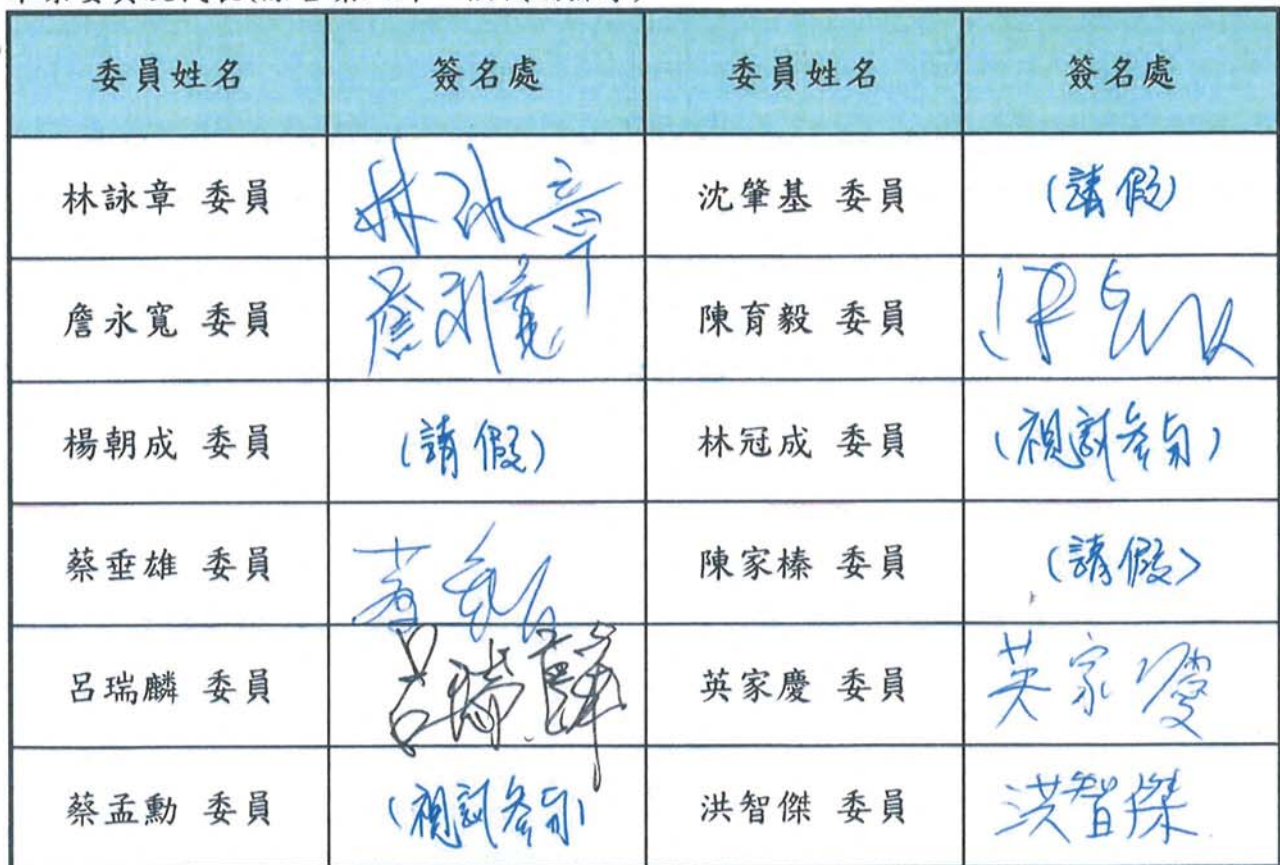 委員姓名 簽名處 委員姓名 簽名處
林詠章 委員 林詠章 沈肇基 委員 (請假)
詹永寬 委員 詹永寬 陳育毅 委員
楊朝成 委員 (請假) 林冠成 委員 (視訊參與)
蔡垂雄 委員 陳家榛 委員 (請假)
呂瑞麟 委員 呂瑞麟 英家慶 委員 英家慶
蔡孟勳 委員 (視訊參與) 洪智傑 委員 洪智傑